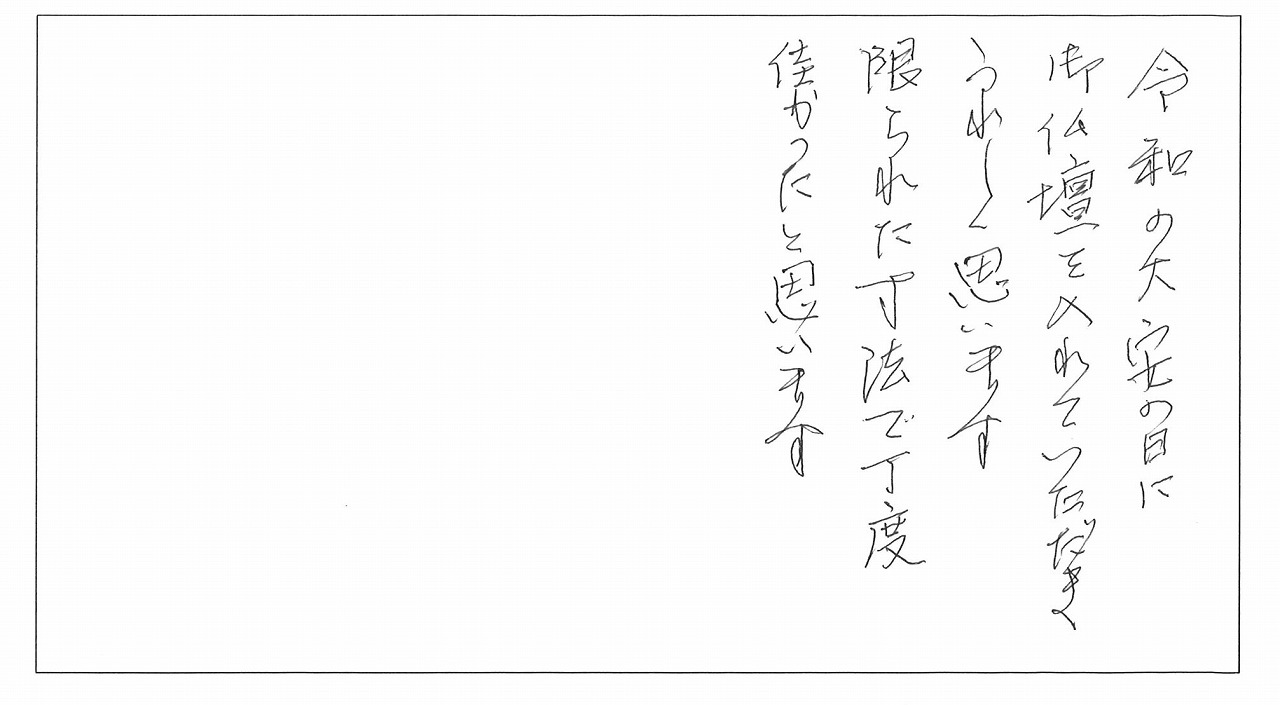 令和の大安の日に
御仏壇を入れていただき
うれしく思います
限られた寸法で丁度
佳かったと思います